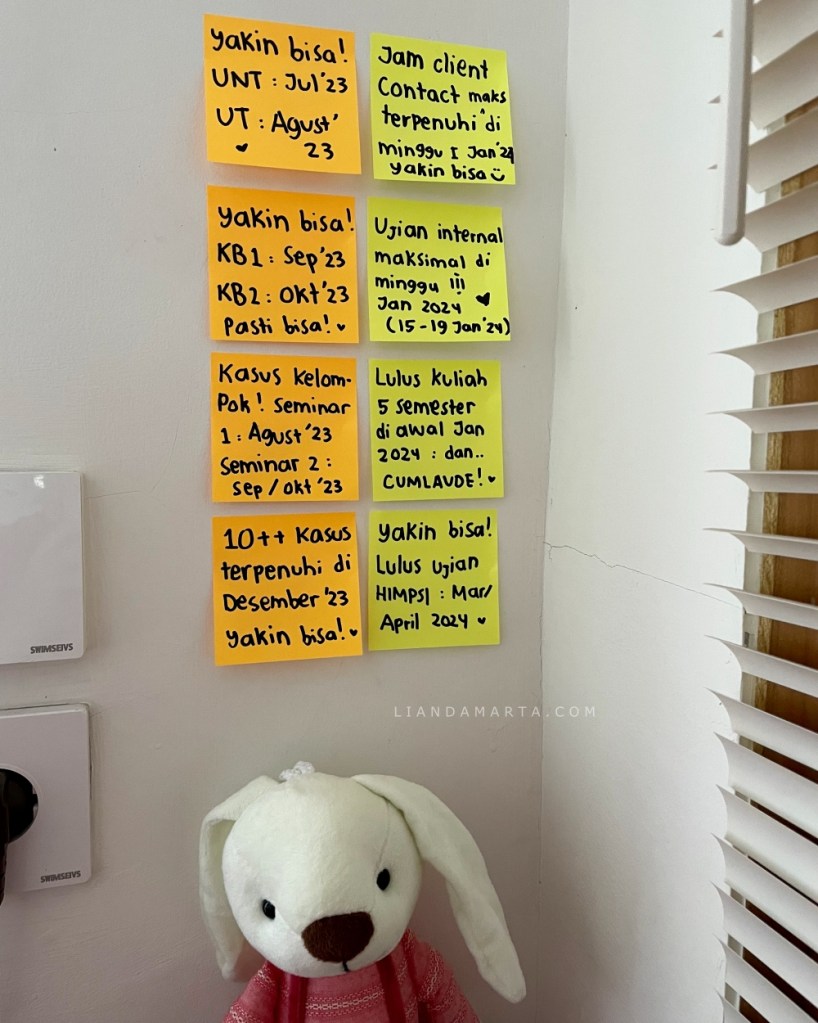 yakin bisa!
UNT : Jul'23
UT : Agust'
23
yakin bisa!
KB1 : Sep'23
KB2 : Okt'23
Pasti bisa!
Kasus Kelom-
pok! Seminar
1 : Agust'23
Seminar 2 :
Sep/Okt '23
10++ Kasus
terpenuhi di
Desember '23
yakin bisa!
Jam client
Contact maks
terpenuhi ^ di
minggu I Jan'24
yakin bisa
Ujian internal
maksimal di
minggu III
Jan 2024
(15-19 Jan'24)
Lulus Kuliah
5 semester
di awal Jan
2024 : dan..
CUMLAUDE!
yakin bisa!
Lulus ujian
HIMPSI : Mar/
April 2024
LIANDAMARTA.COM